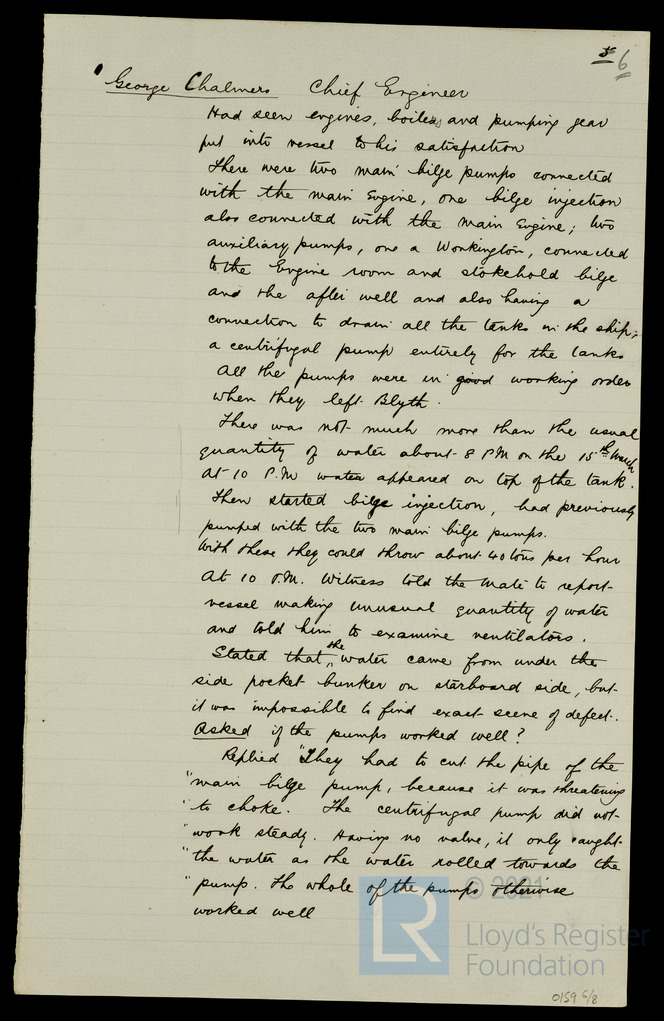 5 6
George Chalmers Chief Engineer
Had seen engines, boilers, and pumping gear
put into vessel to his satisfaction
There were two main bilge pumps connected
with the main Engine, one bilge injection
also connected with the main Engine; two
auxiliary pumps, one a Workington, connected
to the Engine room and stokehold bilge
and the after well and also having a
connection to drain all the tanks in the ship;
a centrifugal pump entirely for the tanks
All the pumps were in good working order
when they left Blyth.
There was not much more than the usual
quantity of water about 8 PM on the 15th March
At 10 P.M water appeared on top of the tank.
Then started bilge injection, had previously
pumped with the two main bilge pumps.
With these they could throw about 40 tons per hour
At 10 P.M. Witness told the Mate to report
vessel making unusual quantity of water
and told him to examine ventilators.
Stated that the water came from under the
side pocket bunker on starboard side, but
it was impossible to find exact scene of defect.
Asked if the pumps worked well?
Replied "They had to cut the pipe of the
"main bilge pump, because it was threatening
"to choke. The centrifugal pump did not
"work steady. Having no valve, it only caught
"the water as the water rolled towards the
"pump. The whole of the pumps otherwise
worked well
© 2021
LR
Lloyd's Register
Foundation
0159 6/8